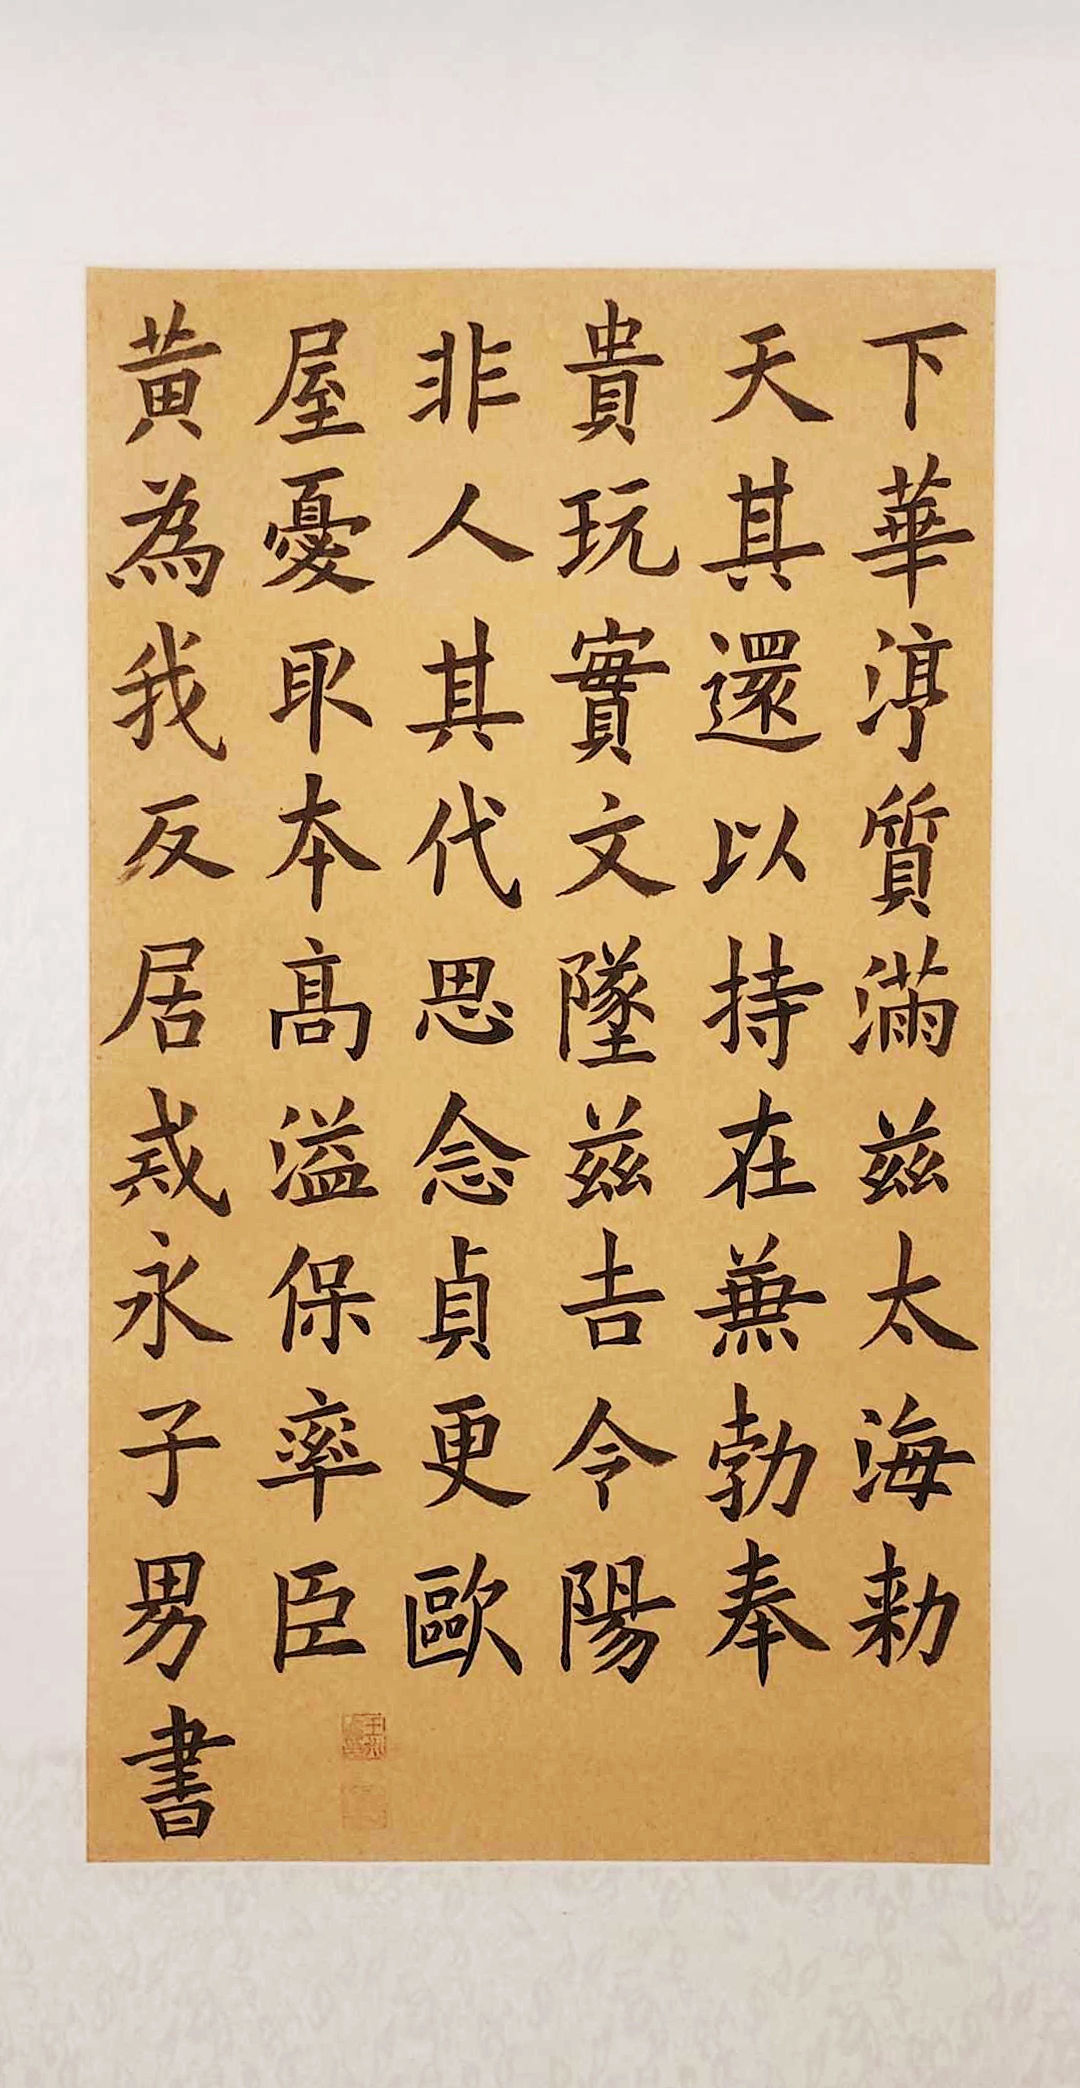 黃屋非貴天下
為憂人玩其華
我取其實還淳
反本代文以質
居高思墜持滿
戒溢念茲在茲
永保貞吉兼太
子率更令勃海
男臣歐陽奉勑
書